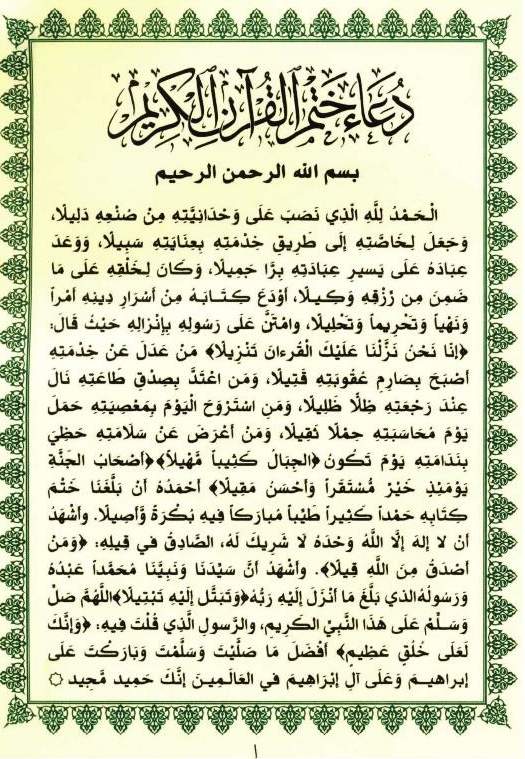 دُعَاءُ خَتْمِ ٱلْقُرْآنِ ٱلْكَرِيمِ
بسم الله الرحمن الرحيم
الْـحَـمْـدُ لِلَّهِ الَّذِي نَصَبَ عَلَى وَحْدَانِيَّتِهِ مِنْ صُنْعِهِ دَلِيلًا،
وَجَعَلَ لِخَاصَّتِهِ إلَى طَرِيقِ خِدْمَتِهِ بِعِنَايَتِهِ سَبِيلًا، وَوَعَدَ
عِبَادَهُ عَلَى يَسيرِ عِبَادَتِهِ بِرًّا جَمِيلًا، وَكَانَ لِخَلْقِهِ عَلَى مَا
ضَمِنَ مِن رِزْقِهِ وَكِـيـلًا، أوْدَعَ كِـتَـابَـهُ مِنْ أسْرَارِ دِينِهِ أمْراً
وَنَهْياً وَتَحْرِيماً وَتَحْلِيلًا، وامْتَنَّ عَلَى رَسُولِهِ بِإنْزَالِهِ حَيْثُ قَالَ:
﴿إنَّا نَحْنُ نَزَّلْنَا عَلَيْكَ الْقُرءانَ تَنْزِيلًا﴾ مَنْ عَدَلَ عَنْ خِدْمَتِهِ
أصْبَحَ بِصَارِمِ عُقُوبَتِهِ قَتِيلًا، وَمَنِ اعْتَدَّ بِصِدْقِ طَاعَتِهِ نَالَ
عِنْدَ رَجْعَتِهِ ظِلًّا ظَلِيلًا، وَمَنِ اسْتَرْوَحَ الْيَوْمَ بِمَعْصِيَتِهِ حَمَلَ
يَوْمَ مُحَاسَبَتِهِ حِمْلًا ثَقِيلًا، وَمَنْ أعْرَضَ عَنْ سَلَامَتِهِ حَظِيَ
بِنَدَامَتِهِ يَوْمَ تَكُونُ ﴿الجِبَالُ كَثِيباً مَّهِيلاً﴾ ﴿أصْحَابُ الجَنَّةِ
يَوْمَئِذٍ خَيْرٌ مُّسْتَقَرّاً وَأحْسَنُ مَقِيلًا﴾ أحْمَدُهُ أنْ بَلَّغَنَا خَتْمَ
كِتَابِهِ حَمْداً كَثِيراً طَيِّباً مُبَارَكاً فِيهِ بُكْرَةً وَّأصِيلًا. وأشْهَدُ
أنْ لَا إلهَ إلَّا اللَّهُ وَحْدَهُ لَا شَرِيكَ لَهُ، الصَّادِقُ في قِيلِهِ: ﴿وَمَنْ
أصْدَقُ مِنَ اللَّهِ قِيلًا﴾. وأشْهَدُ أنَّ سَيِّدَنَا وَنَبِيَّنَا مُحَمَّداً عَبْدُهُ
وَرَسُولُهُ الذي بَلَّغَ مَا أنْزَلَ إلَيْهِ رَبُّهُ ﴿وَتَبَتَّل إلَيْهِ تَبْتِيلًا﴾ اللَّهُمَّ صَلِّ
وَسَلِّمْ عَلَى هَذَا النَّبِيِّ الكَرِيمِ، والرَّسولِ الَّذِي قُلْتَ فِيهِ: ﴿وَإنَّكَ
لَعَلَى خُلُقٍ عَظِيمٍ﴾ أفْضَلَ مَا صَلَّيْتَ وَسَلَّمْتَ وَبَارَكْتَ عَلَى
إبراهيمَ وَعَلَى آلِ إبْرَاهِيمَ في العَالَمِينَ إنَّكَ حَمِيد مَّجِيد ۞
١